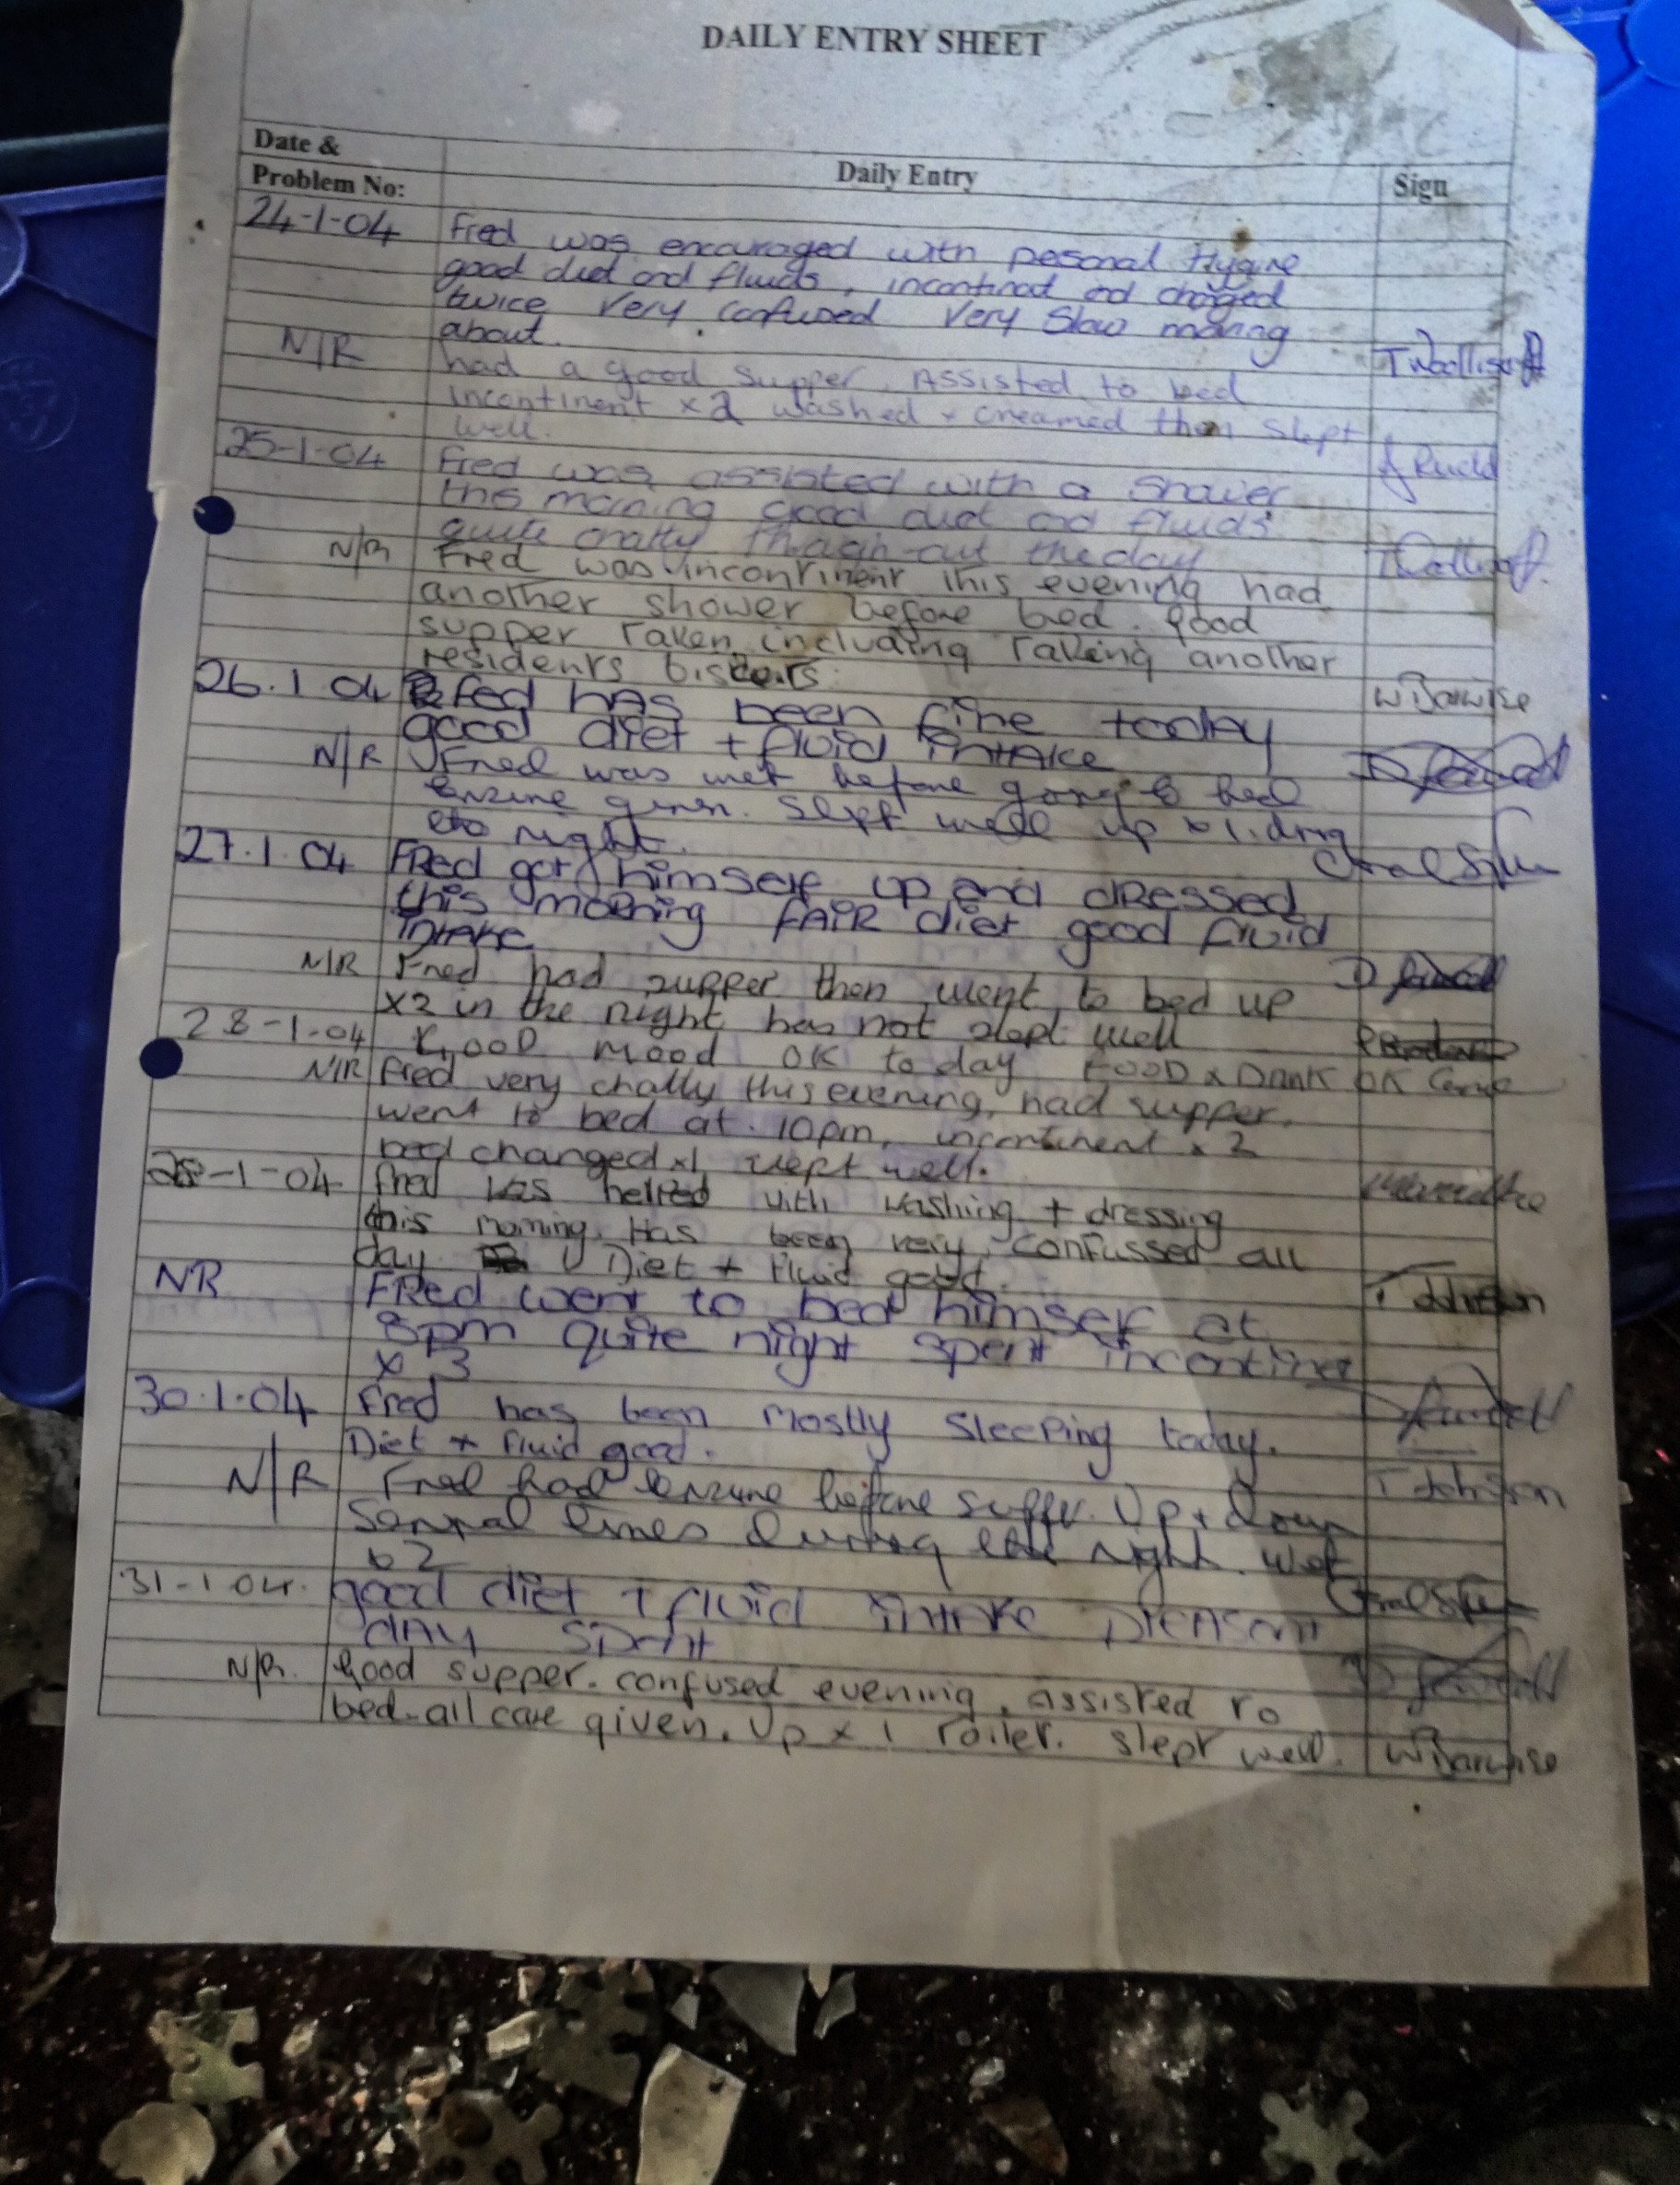 DAILY ENTRY SHEET
Date &
Problem No:
Daily Entry
Sign
24-1-04 Fred was encouraged with pesonal Hygine
good diet and fluids, incontinat and changed
twice Very Confused Very Slow moving
about.
N/R had a good supper. Assisted to bed
incontinent x2 washed + creamed then slept
well.
25-1-04 Fred was assisted with a shower
this morning good diet and fluids
quite chatty through-out the day
N/R Fred was incontinent this evening had
another shower before bed. Good
supper taken, including taking another
residents biscuits. W Darwise
26.1.04 Fed HAS been fine today
good diet + fluid INTAKE
N/R Fred was wet before going to bed
given. Slept well up x 1. dring
night.
27.1.04 FRed got himself up and dRessed
this moRning FAIR diet good fluid
INTAKE
N/R Fred had supper then went to bed up
x2 in the night has not slept well
28-1-04 GOOD mood OK to day FOOD & DRINK OK
N/R Fred very chatty this evening, had supper.
went to bed at 10pm, incontinent x 2
bed changed x1, slept well.
-1-04 Fred was helped with washing + dressing
this morning. Has been very confussed all
day Diet + fluid good.
NR FRed went to bed himself at
8pm quite night spent incontinet
x 3
30.1.04 Fred has been mostly sleeping today.
Diet + fluid good. T Johnson
N/R Fred had before supper. Up + down
several times during the night. wet
x2
31-1 04. good diet + fluid INTAKE pleasant
dAy spent
N/R. Good supper. confused evening, assisted to
bed-all care given. Up x 1 toilet. slept well. W Darwise